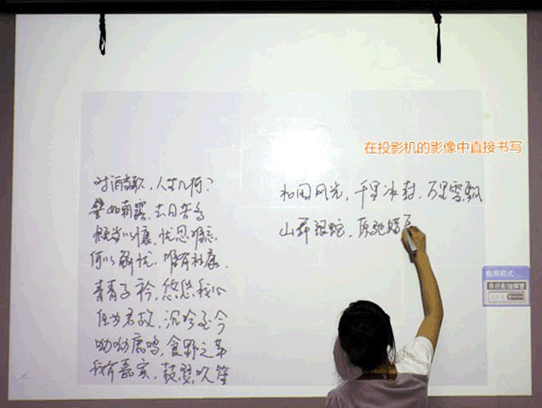 在投影机的影像中直接书写
对酒当歌，人生几何？
譬如朝露，去日苦多
慨当以慷，忧思难忘
何以解忧，唯有杜康。
青青子衿，悠悠我心
但为君故，沉吟至今
呦呦鹿鸣，食野之苹
我有嘉宾，鼓瑟吹笙
北国风光，千里冰封，万里雪飘
山舞银蛇，原驰蜡